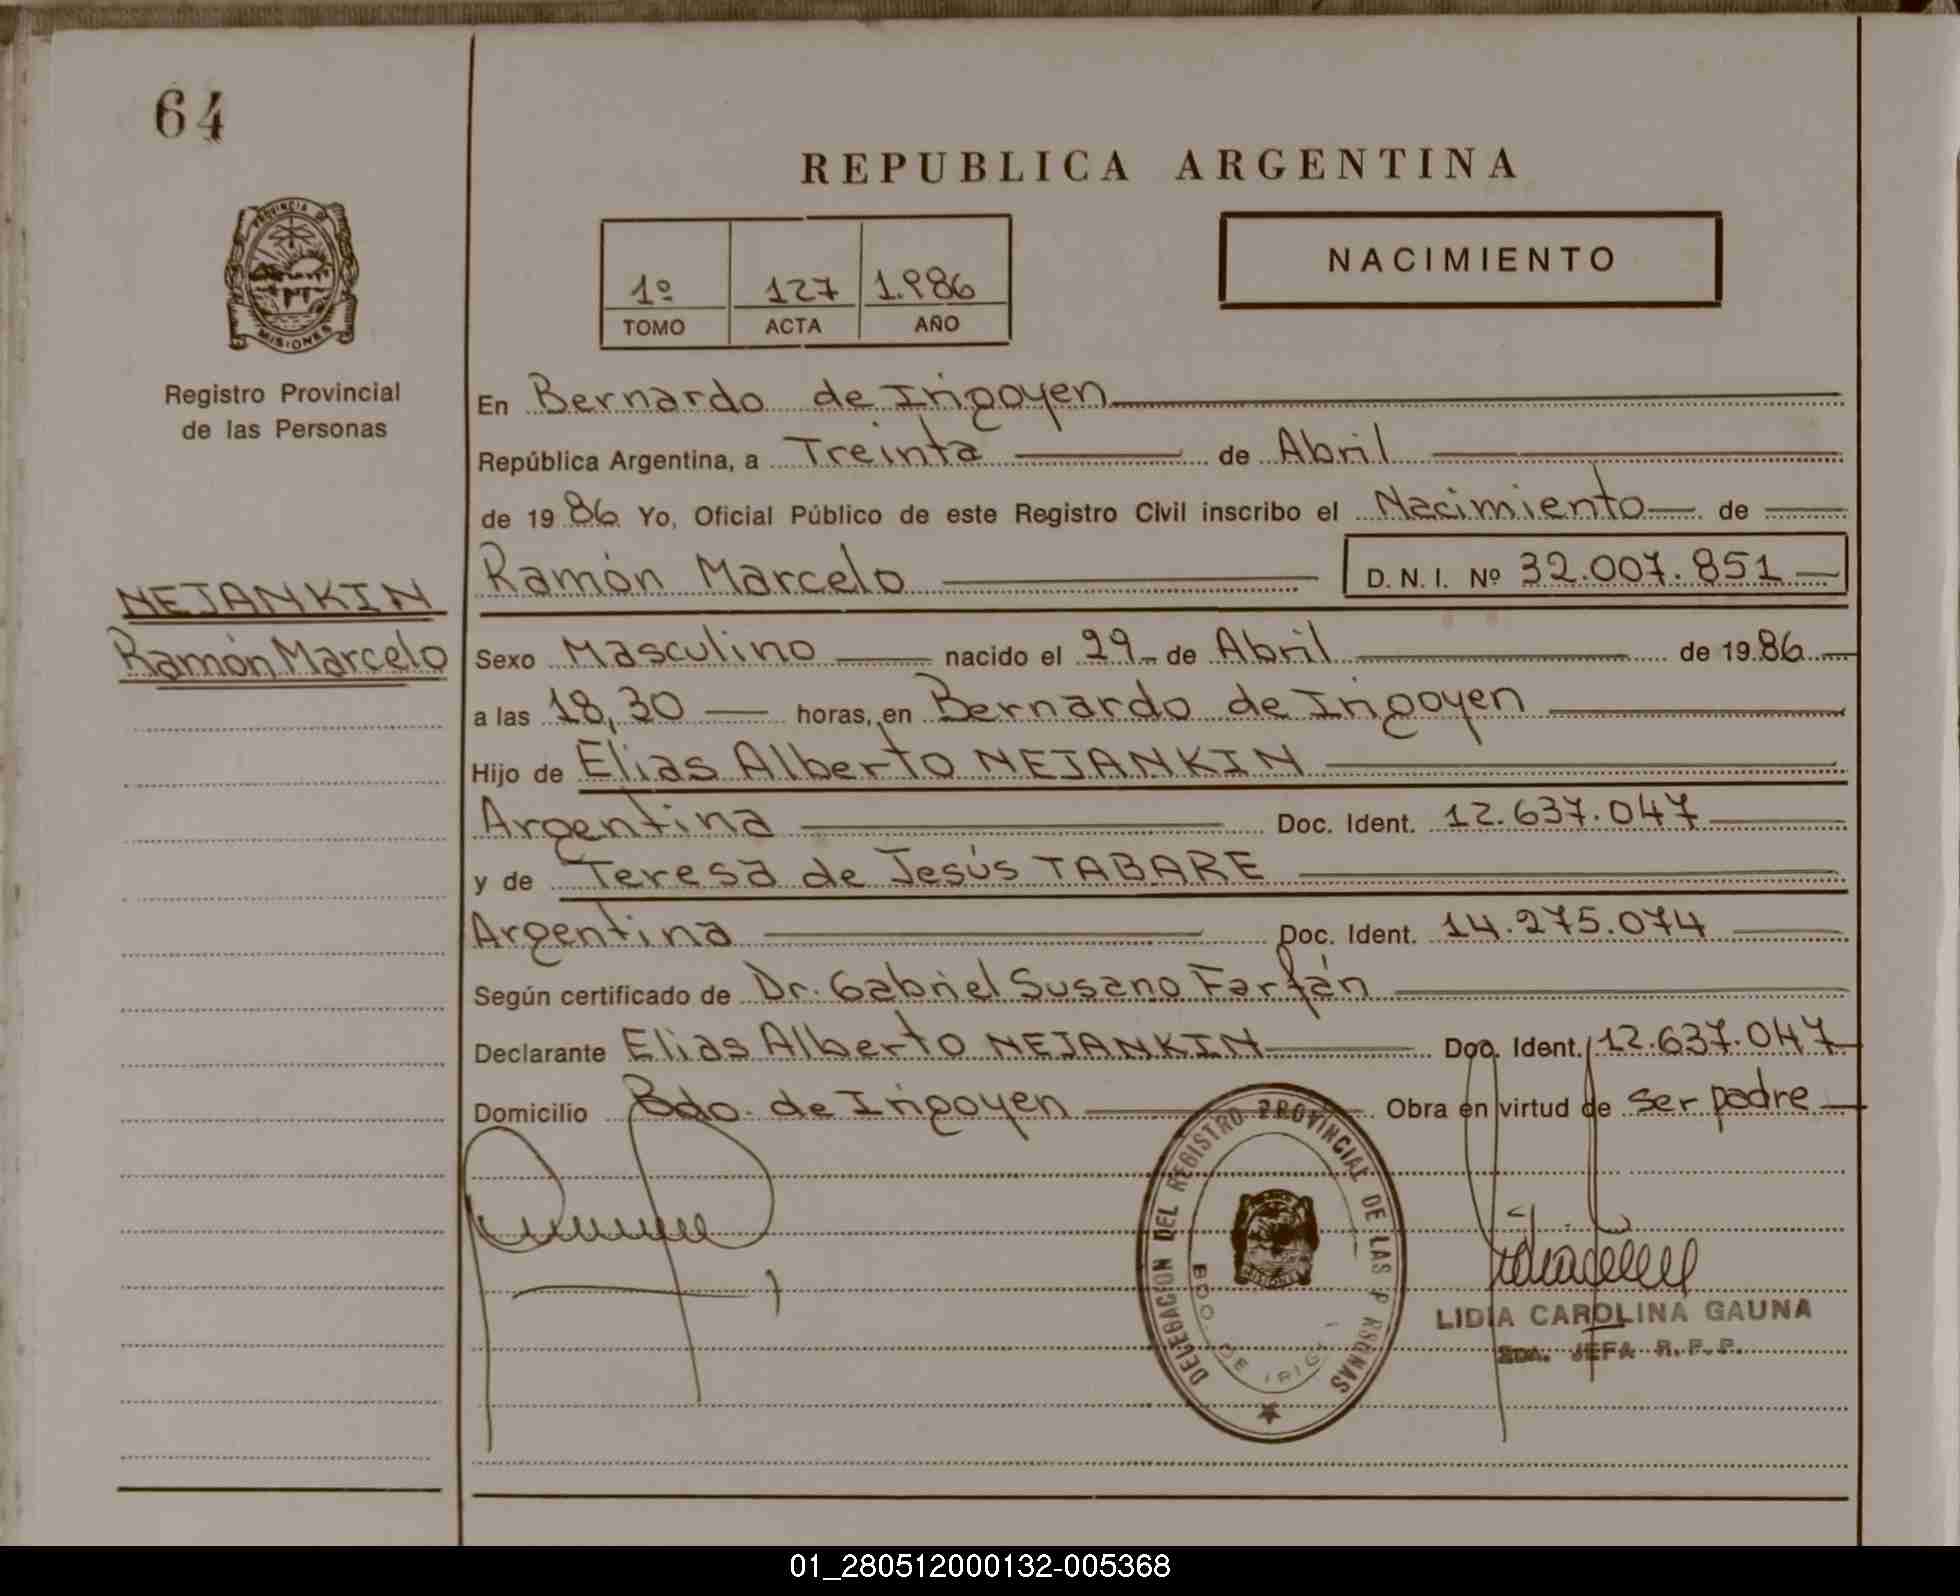 64
REPUBLICA ARGENTINA
PROVINCIA D
MISIONES
Registro Provincial
de las Personas
1º 127 1.986
TOMO ACTA AÑO
NACIMIENTO
En Bernardo de Irigoyen
República Argentina, a Treinta de Abril
de 1986 Yo, Oficial Público de este Registro Civil inscribo el Nacimiento de
Ramón Marcelo D. N. I. Nº 32.007.851
NEJANKIN
Ramón Marcelo
Sexo Masculino nacido el 29 de Abril de 1986
a las 18,30 horas, en Bernardo de Irigoyen
Hijo de Elias Alberto NEJANKIN
Argentina Doc. Ident. 12.637.047
y de Teresa de Jesús TABARE
Argentina Doc. Ident. 14.275.074
Según certificado de Dr. Gabriel Susano Farfán
Declarante Elias Alberto NEJANKIN Doc. Ident. 12.637.047
Domicilio Bdo. de Irigoyen Obra en virtud de ser padre
DELEGACION DEL REGISTRO PROVINCIAL DE LAS P RSONAS
BDO. DE IRIG
MISIONES
LIDIA CAROLINA GAUNA
2DA. JEFA R.P.P.
01_280512000132-005368